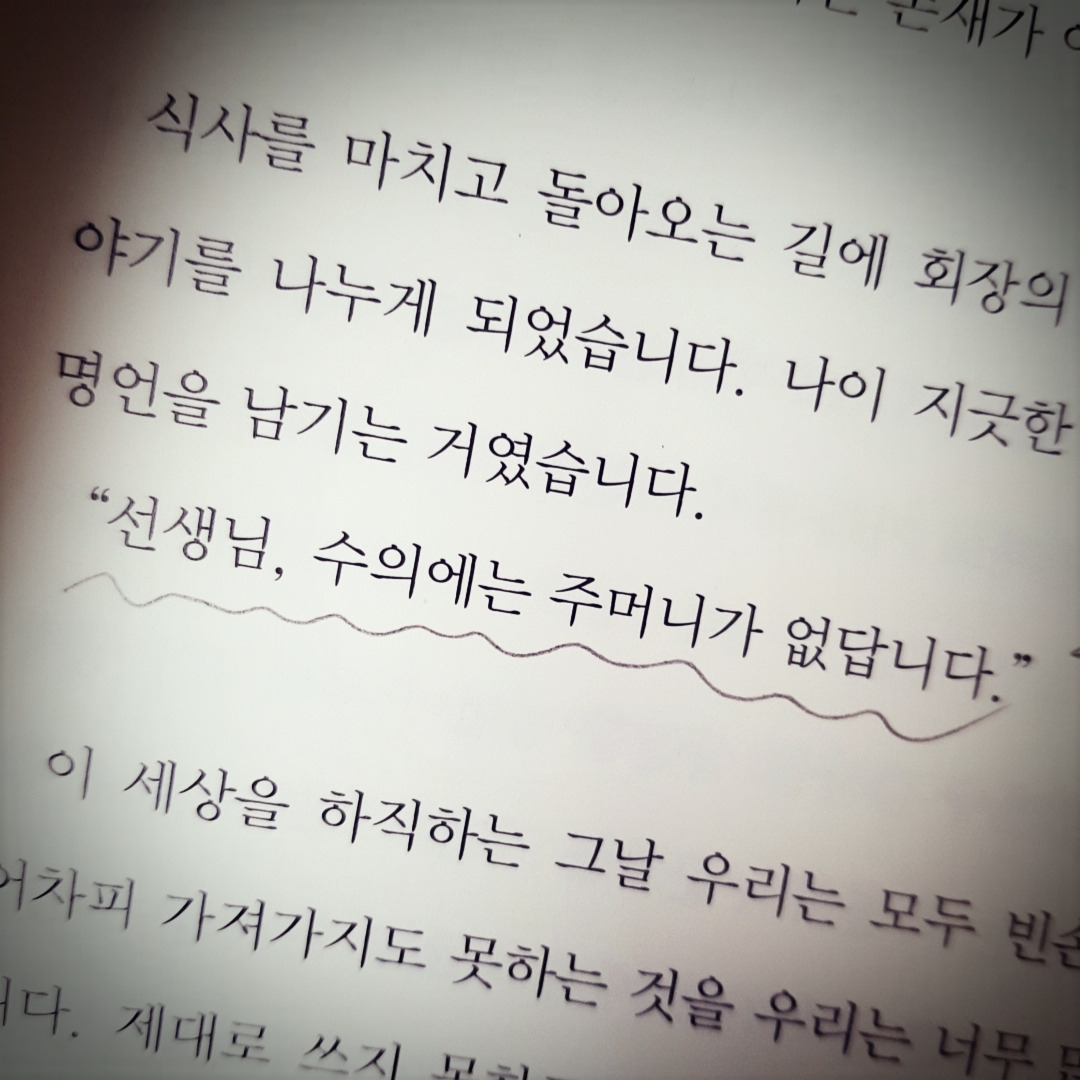 존재가
식사를 마치고 돌아오는 길에 회장의
야기를 나누게 되었습니다. 나이 지긋한
명언을 남기는 거였습니다.
“선생님, 수의에는 주머니가 없답니다.”
이 세상을 하직하는 그날 우리는 모두
어차피 가져가지도 못하는 것을 우리는 너무
제대로 쓰지